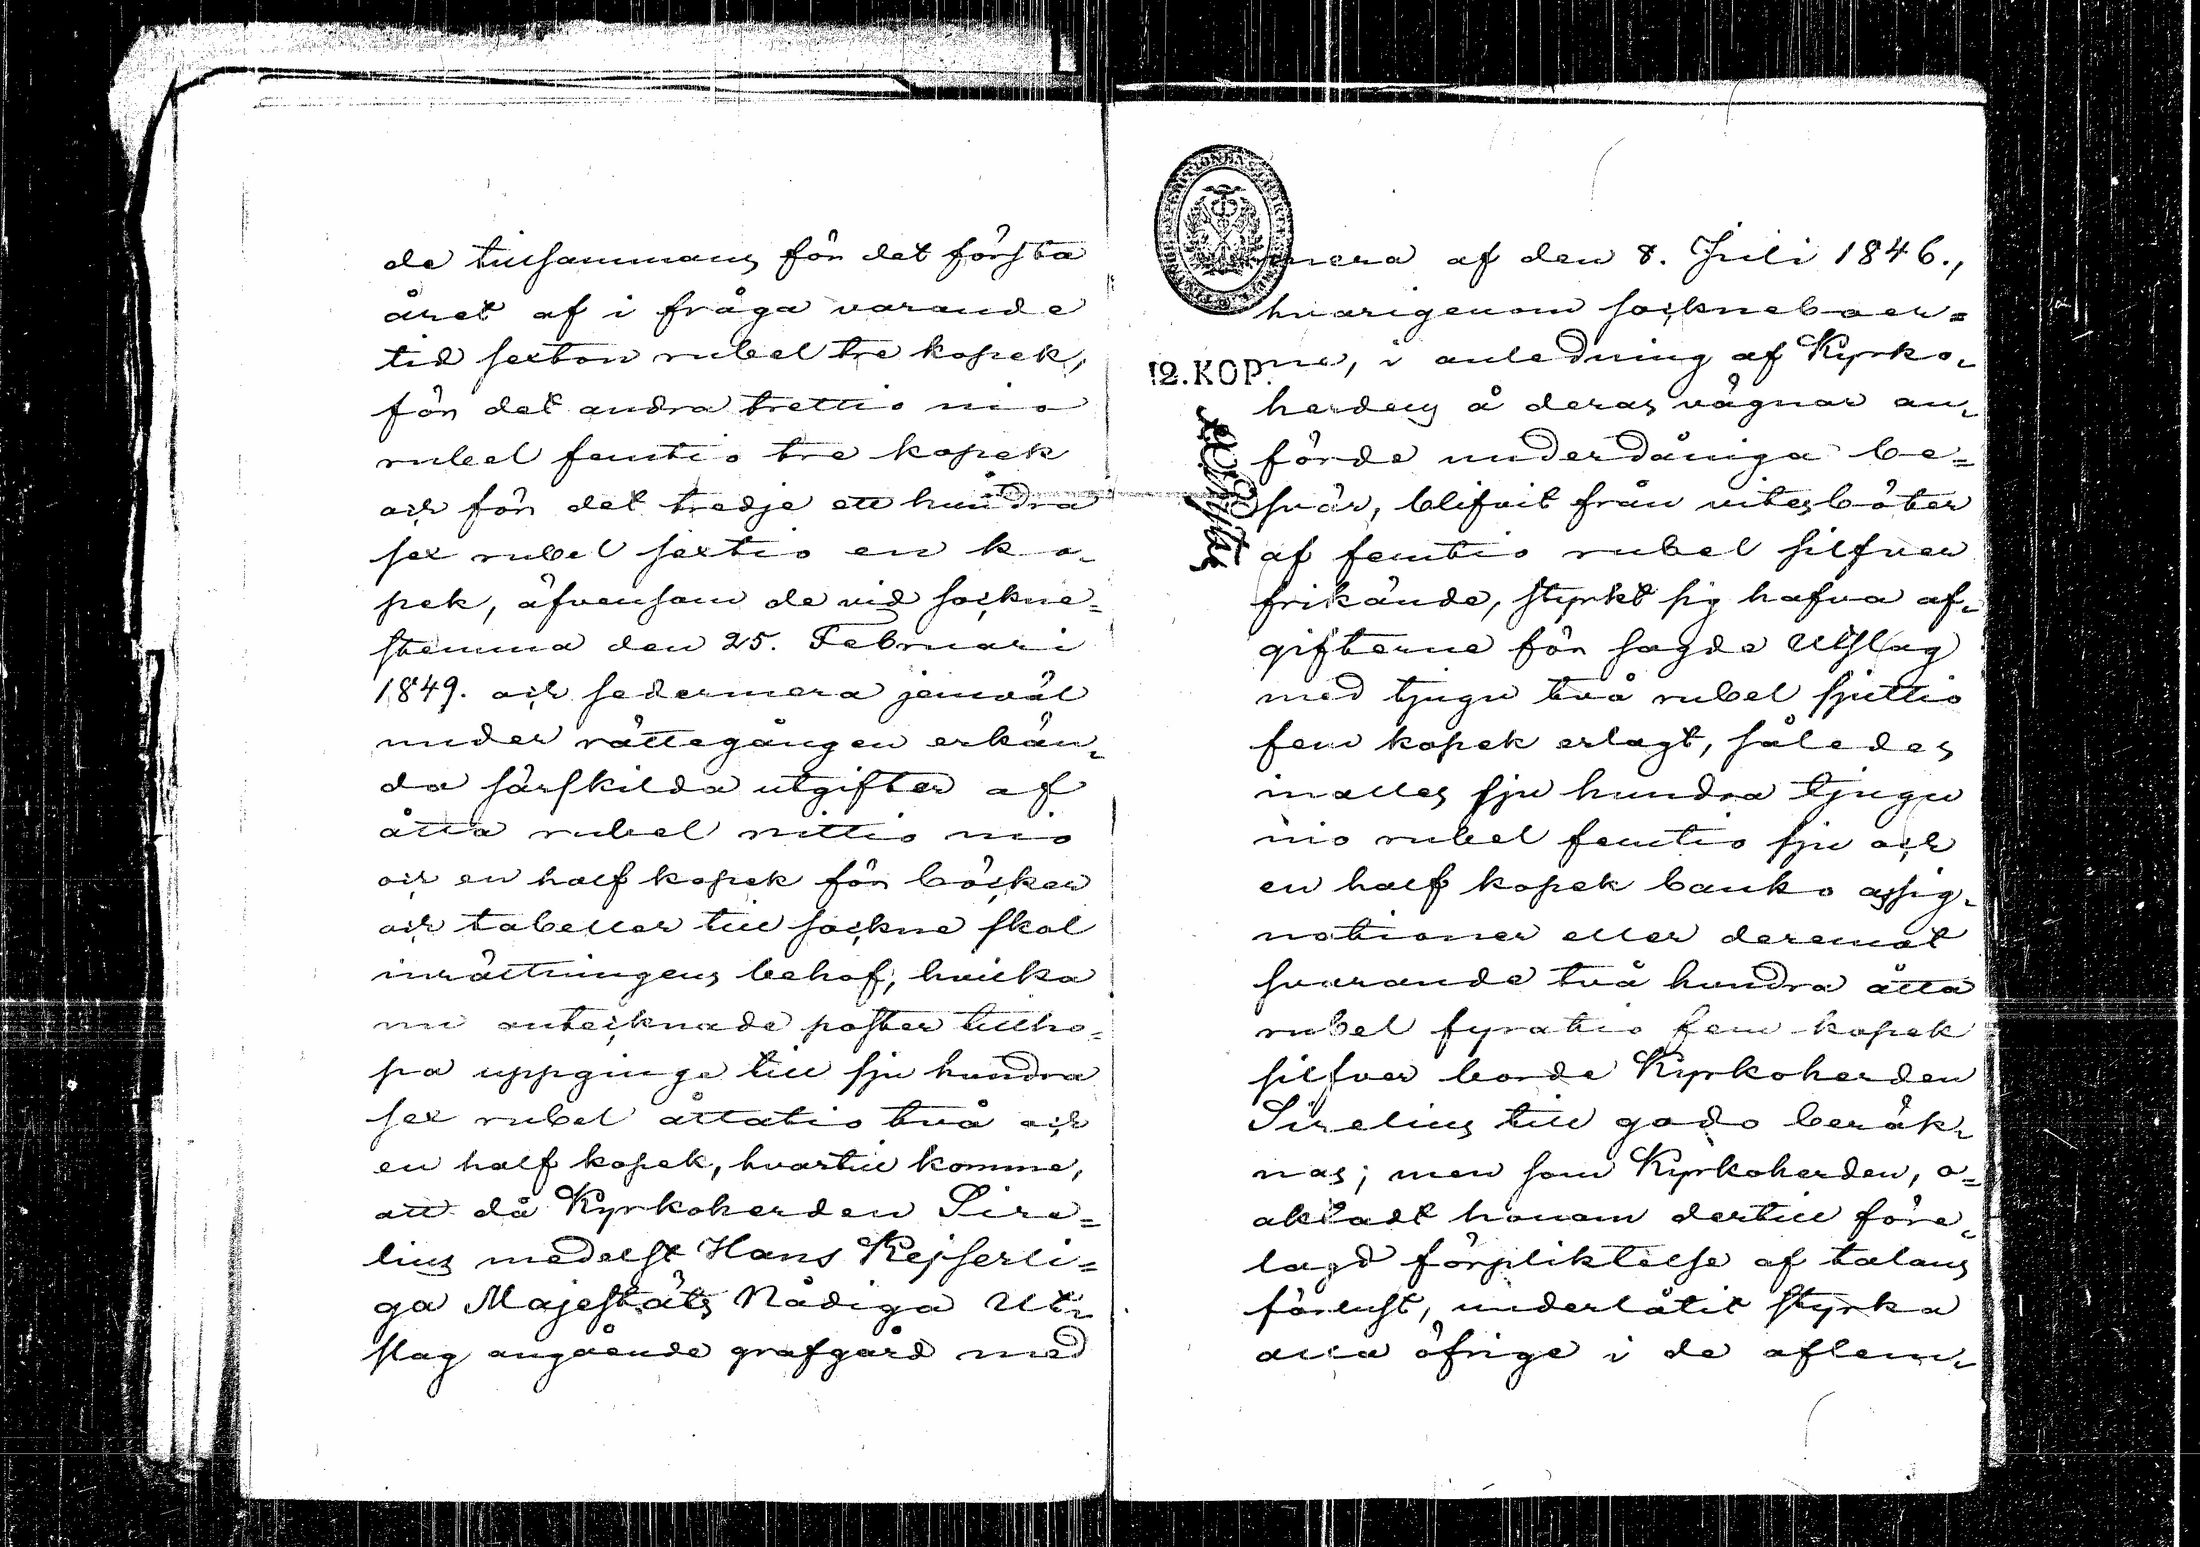 de tillsammans för det första
året af i fråga varande
tid sexton rubel tre kopek,
för det andra trettio nio
rubel femtio tre kopek
och för det tredje ett hundra
sex rubel sextio en ko-
pek, äfvensom de vid sockne-
stemma den 25. Februari
1849. och sedermera jemväl
under rättegången erkän-
da särskilda utgifter af
åtta rubel nittio nio
och en half kopek för böcker
och tabeller till sockne skol
inrättningens behof, hvilka
nu antecknade poster tillho-
pa uppginge till sju hundra
sex rubel åttatio två och
en half kopek, hvartill komme,
att då Kyrkoherden Sire-
lius medelst Hans Kejserli-
ga Majestäts Nådiga Ut-
slag angående grafgård med
mera af den 8. Juli 1846.,
hvarigenom sockneboer-
ne, i anledning af Kyrko-
12.KOP.
herdens å deras vägnar an-
förde underdåniga be-
svär, blifvit från vitesböter
af femtio rubel silfver
frikände, styrkt sig hafva af-
gifterne för sagde Utslag
med tjugu två rubel sjuttio
fem kopek erlagt, således
inalles sju hundra tjugu
nio rubel femtio sju och
en half kopek banko assig-
nationer eller deremot
svarande två hundra åtta
rubel fyratio fem kopek
silfver borde Kyrkoherden
Sirelius till godo beräk-
nas; men som Kyrkoherden, o-
aktadt honom dertill före-
lagd förpliktelse af talans
förlust, underlåtit styrka
alla öfrige i de aflem-